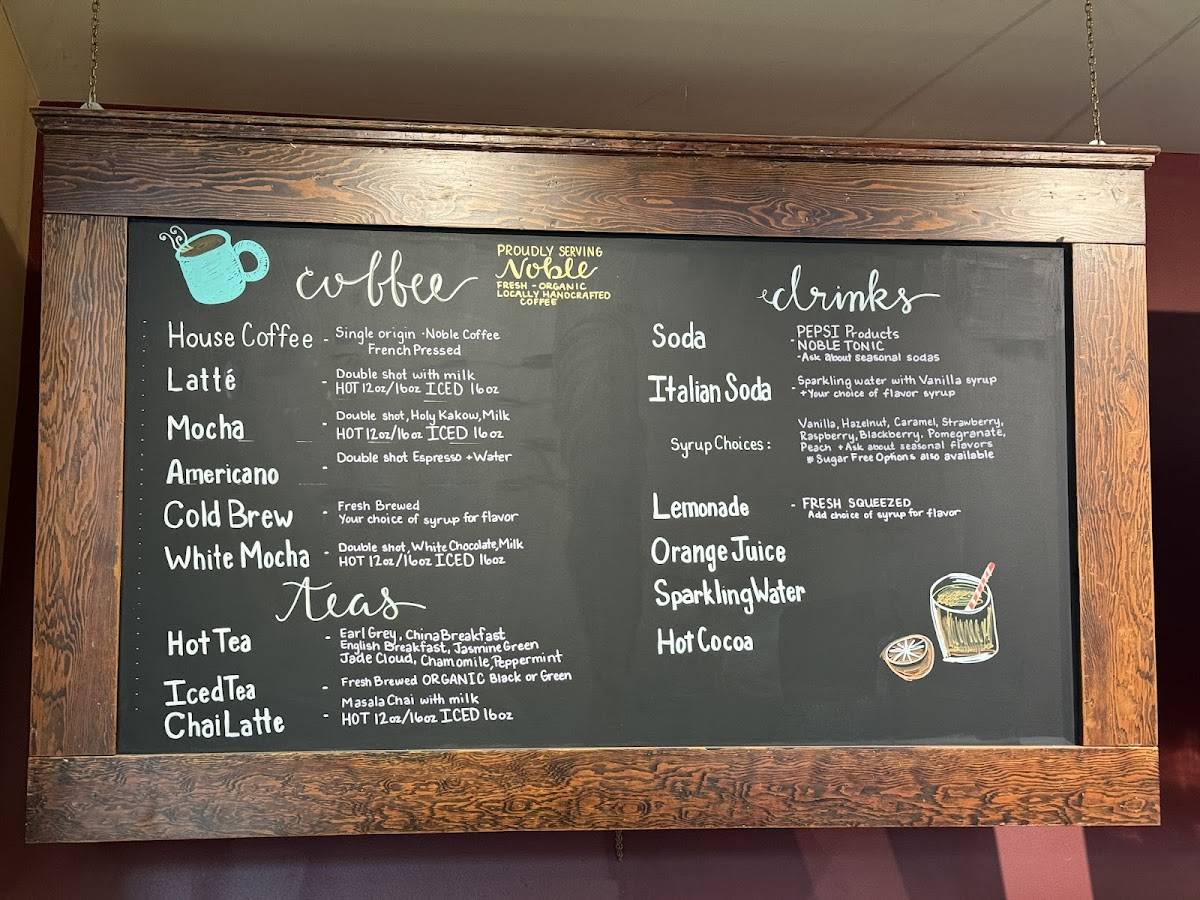 coffee
PROUDLY SERVING
Noble
FRESH - ORGANIC
LOCALLY HANDCRAFTED
COFFEE
House Coffee - Single origin - Noble Coffee
French Pressed
Latté - Double shot with milk
HOT 12oz/16oz ICED 16oz
Mocha - Double shot, Holy Kakow, Milk
HOT 12oz/16oz ICED 16oz
Americano - Double shot Espresso + Water
Cold Brew - Fresh Brewed
Your choice of syrup for flavor
White Mocha - Double shot, White Chocolate, Milk
HOT 12oz/16oz ICED 16oz
teas
Hot Tea - Earl Grey, China Breakfast
English Breakfast, Jasmine Green
Jade Cloud, Chamomile, Peppermint
Iced Tea - Fresh Brewed ORGANIC Black or Green
Chai Latte - Masala Chai with milk
HOT 12oz/16oz ICED 16oz
drinks
Soda - PEPSI Products
NOBLE TONIC
-Ask about seasonal sodas
Italian Soda - Sparkling water with Vanilla syrup
+Your choice of flavor syrup
Syrup Choices: Vanilla, Hazelnut, Caramel, Strawberry,
Raspberry, Blackberry, Pomegranate,
Peach +Ask about seasonal flavors
* Sugar Free Options also available
Lemonade - FRESH SQUEEZED
Add choice of syrup for flavor
Orange Juice
Sparkling Water
Hot Cocoa